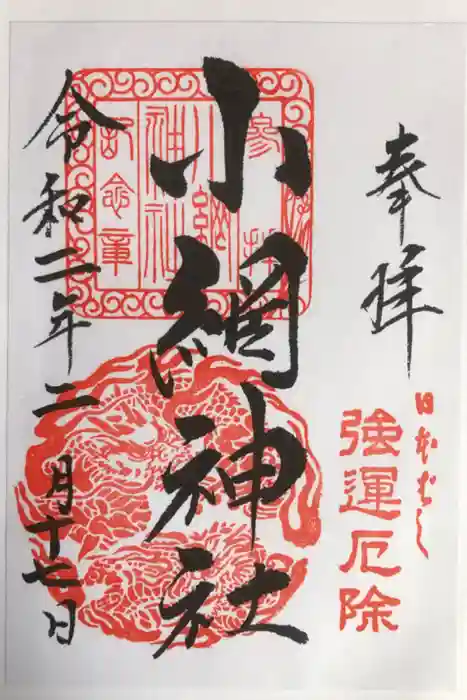 奉拝
日本ばし
強運厄除
小網神社
参拝
小網
神社
記念章
令和二年二月十七日